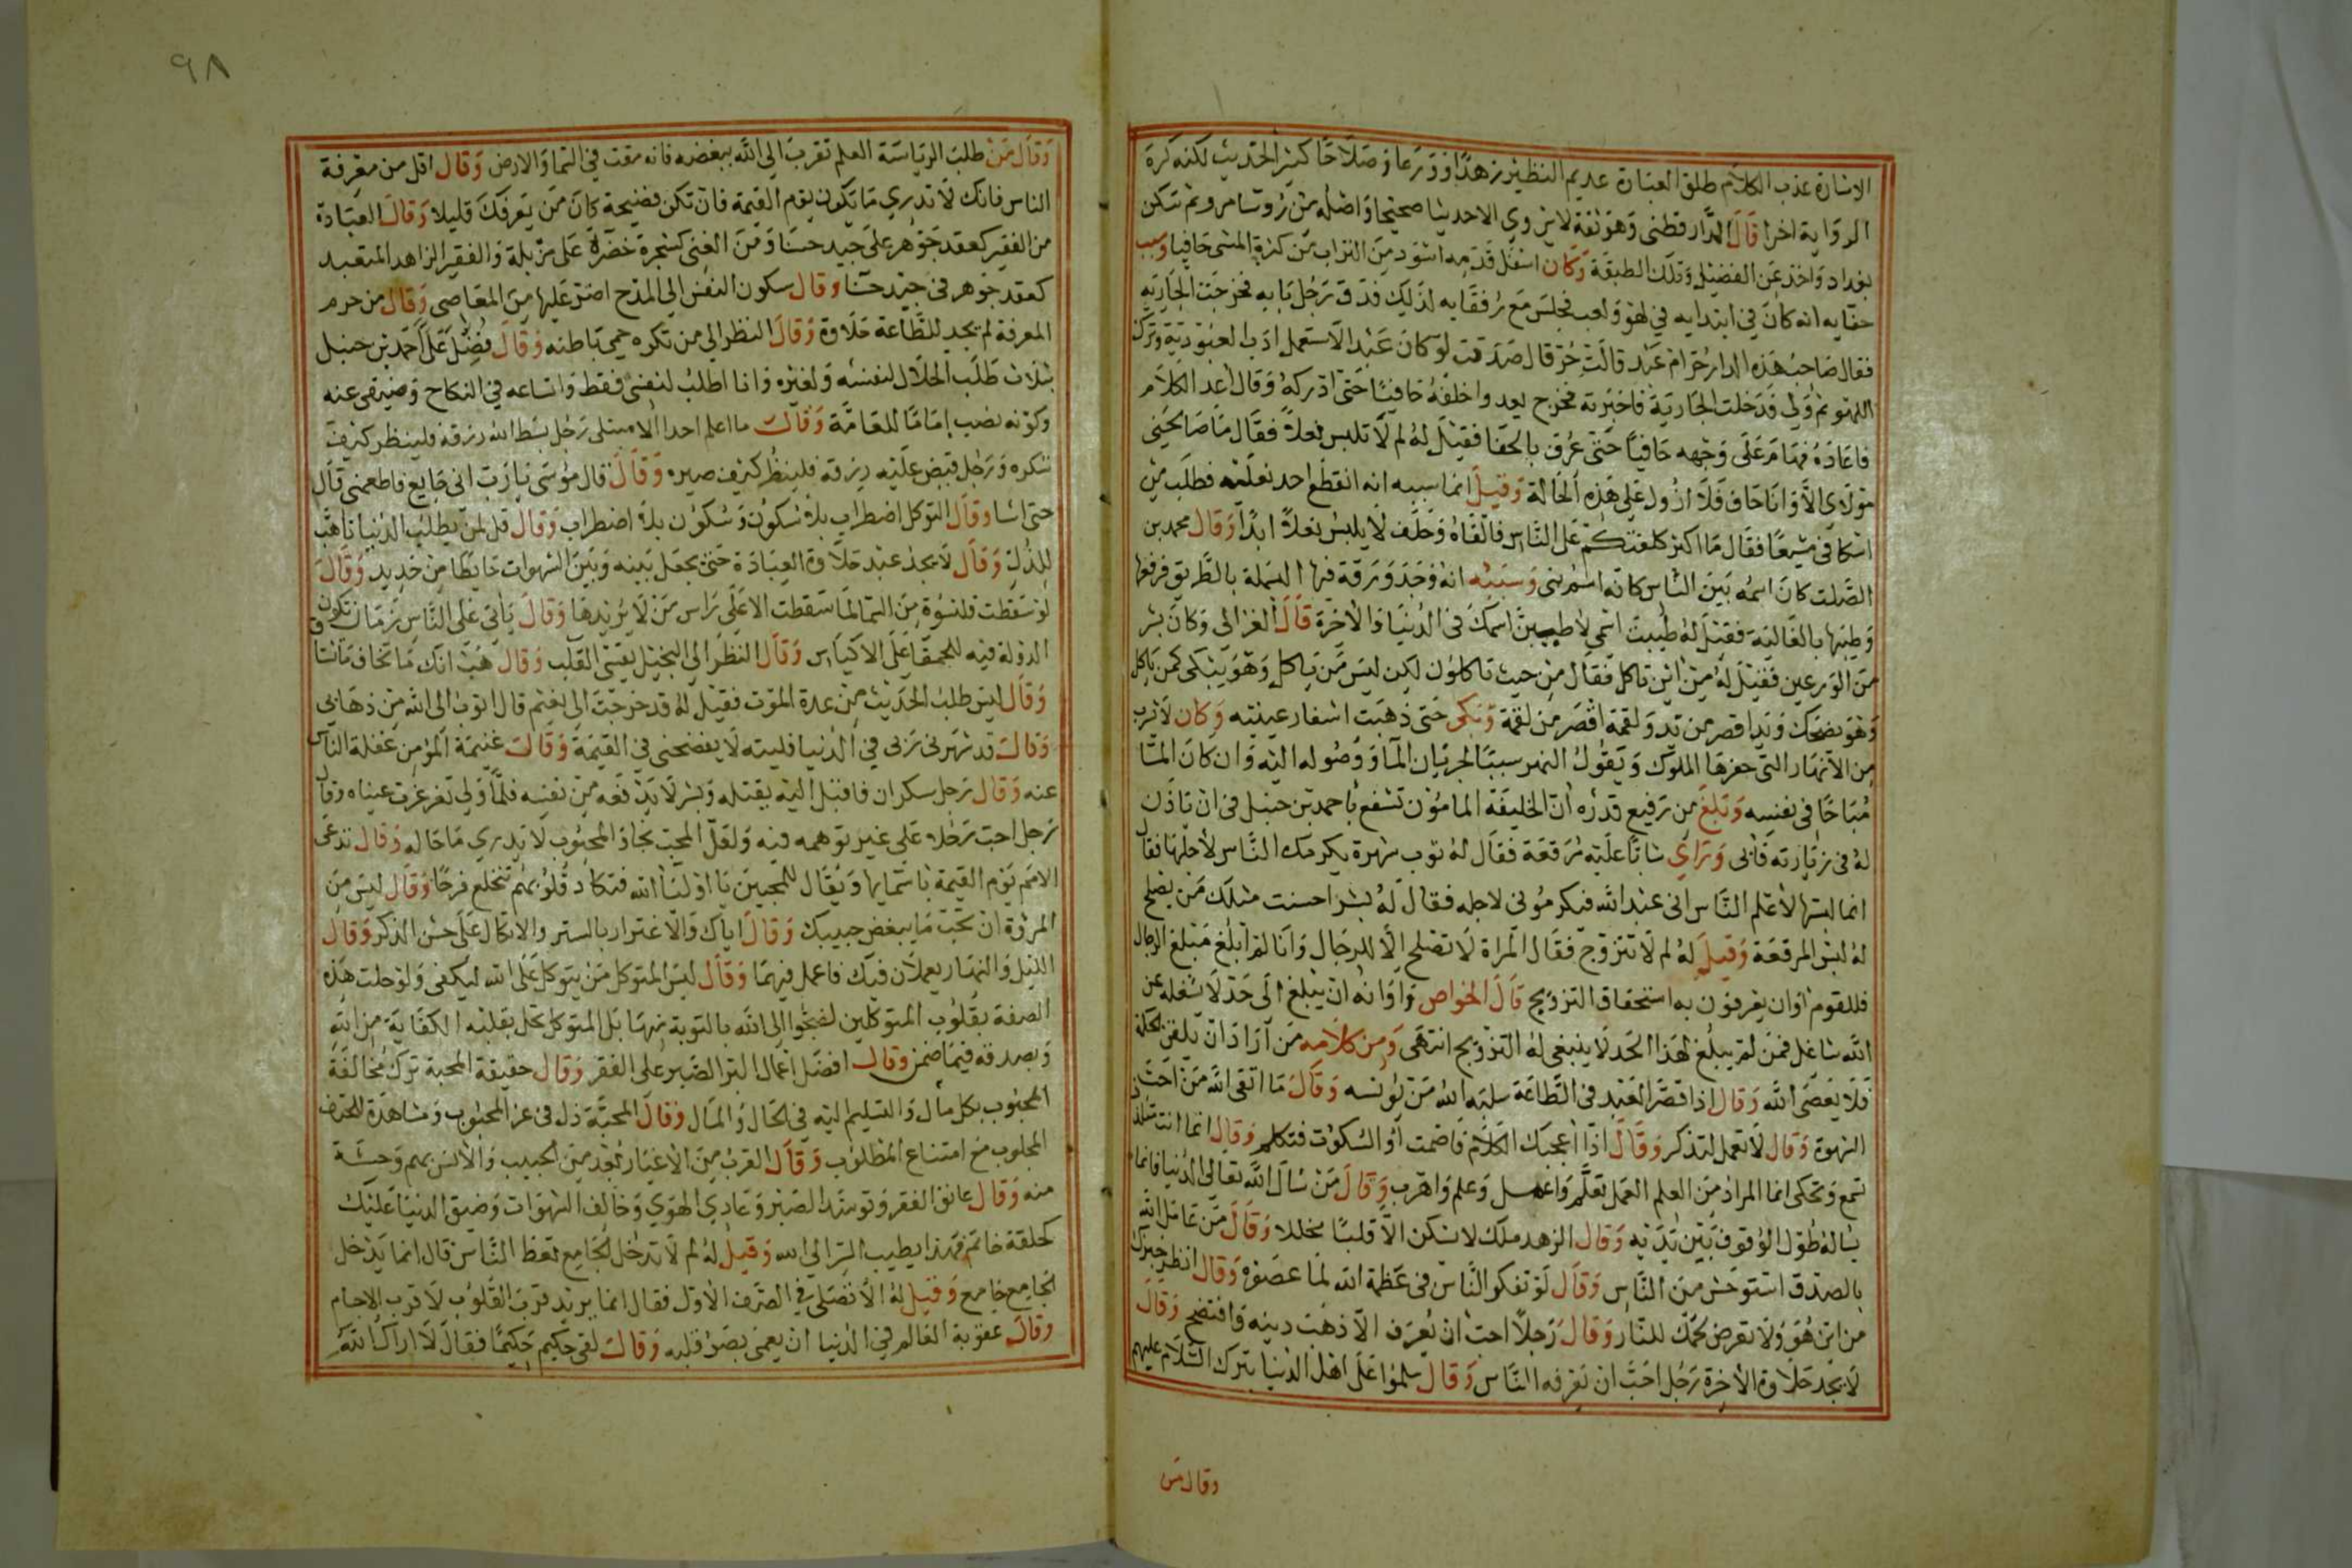 الاشارة عذب الكلام طلق العبارة عديم النظير زهدا وورعا وصلاحا كثير الحديث لكنه كره
الرواية اخرا قال الدارقطنى وهو ثقة لا يروي الا حديثا صحيحا واصله من رؤسا مرو ثم سكن
بغداد واخذ عن الفضيل وتلك الطبقة وكان اسفل قدمه اسود من التراب من كثرة المشى حافيا وسبب
حفايه انه كان في ابتدايه في لهو ولعب فجلس مع رفقايه لذلك فدق رجل بابه فخرجت الجاريه
فقال صاحب هذه الدار حرام عبد قالت حر قال صدقت لو كان عبدا لاستعمل ادب العبودية وترك
اللهو ثم ولى فدخلت الجارية فاخبرته فخرج يعدوا خلفه حافيا حتى ادركه وقال اعد الكلام
فاعاده فهام على وجهه حافيا حتى عرف بالحفا فقيل له لم لا تلبس نعلا فقال ما صالحنى
مولاى الا وانا حاف فلا ازول على هذه الحالة وقيل انما سببه انه انقطع احد نعليه فطلب من
اسكافى شسعا فقال ما اكثر كلفتكم على الناس فالقاه وحلف لا يلبس نعلا ابدا وقال محمد بن
الصلت كان اسمه بين الناس كانه اسم نبى وسببه انه وجد ورقة فيها البسملة بالطريق فرفعها
وطيبها بالغالية فقيل له طيبت اسمي لاطيبن اسمك في الدنيا والاخرة قال الغزالى وكان بشر
من الورعين فقيل له من اين تاكل فقال من حيث تاكلون لكن ليس من ياكل وهو يبكى كمن ياكل
وهو يضحك ويد اقصر من يد ولقمة اقصر من لقمة وبكى حتى ذهبت اشفار عينيه وكان لا يشرب
من الانهار التى حفرها الملوك ويقول النهر سببا لجريان الما ووصوله اليه وان كان الما
مباحا في نفسه وبلغ من رفيع قدره ان الخليفة المامون تشفع باحمد بن حنبل فى ان ياذن
له فى زيارته فابى وراى شابا عليه مرقعة فقال له ثوب شهرة يكرمك الناس لاجلها فقال
انما لبستها لاعلم الناس انى عبد الله فيكرمونى لاجله فقال له بشر احسنت مثلك من يصلح
له لبس المرقعة وقيل له لم لا تتزوج فقال المراة لا تصلح الا للرجال وانا لم ابلغ مبلغ الرجال
فللقوم اوان يعرفون به استحقاق التزويج قال الخواص واوانه ان يبلغ الى حد لا يشغله عن
الله شاغل فمن لم يبلغ لهذا الحد لا ينبغى له التزويج انتهى ومن كلامه من اراد ان يلقن الحكمة
فلا يعصى الله وقال اذا قصر العبد فى الطاعة سلبه الله من يؤنسه وقال ما اتقى الله من احب
الشهوة وقال لا تعمل لتذكر وقال اذا اعجبك الكلام فاصمت او السكوت فتكلم وقال انما انت تتلذذ
تسمع وتحكى انما المراد من العلم العمل تعلم واعمل وعلم واهرب وقال من سال الله تعالى الدنيا فانما
يساله طول الوقوف بين يديه وقال الزهد ملك لا يسكن الا قلبا مخللا وقال من عامل الله
بالصدق استوحش من الناس وقال لو تفكر الناس فى عظمة الله لما عصوه وقال انظر خبزك
من اين هو ولا تعرض لحمك للنار وقال رجلا احب ان يعرف الا ذهب دينه وافتضح وقال
لا يجد حلاوة الاخرة رجل احب ان يعرفه الناس وقال سلموا على اهل الدنيا بترك السلام عليهم
وقال من
٩٨
وقال من طلب الرياسة العلم تقرب الى الله ببغضه فانه مقت في السما والارض وقال اقل من معرفة
الناس فانك لا تدري ما يكون يوم القيمة فان تكن فضيحة كان من يعرفك قليلا وقال العبادة
من الفقير كعقد جوهر على جيد حسنا ومن الغنى كشجرة خضرة على مزبلة والفقير الزاهد المتعبد
كعقد جوهر فى جيد حسنا وقال سكون النفس الى المدح اضر عليها من المعاصى وقال من حرم
المعرفة لم يجد للطاعة حلاوة وقال النظر الى من تكره حمى باطنه وقال فضل على احمد بن حنبل
بثلاث طلب الحلال لنفسه ولغيره وانا اطلب لنفسى فقط واتساعه في النكاح وضيقى عنه
وكونه نصب إماما للعامة وقال ما اعلم احدا الا مبتلى رجل بسط الله رزقه فلينظر كيف
شكره ورجل قبض عليه رزقه فلينظر كيف صبره وقال قال موسى يا رب انى جايع فاطعمنى قال
حتى اشا وقال التوكل اضطراب بلا سكون وسكون بلا اضطراب وقال قل لمن يطلب الدنيا تاهب
للذل وقال لا يجد عبد حلاوة العبادة حتى يجعل بينه وبين الشهوات حايطا من حديد وقال
لو سقطت قلنسوة من السما لما سقطت الا على راس من لا يريدها وقال ياتى على الناس زمان تكون
الدولة فيه للحمقا على الاكياس وقال النظر الى البخيل يقسى القلب وقال هب انك ما تخاف ما تشا
وقال ليس طلب الحديث من عدة الموت فقيل له قد خرجت الى نعيم قال اتوب الى الله من ذهابى
وقال قد شهرنى ربى في الدنيا فليته لا يفضحنى في القيمة وقال غنيمة المؤمن غفلة الناس
عنه وقال رجل سكران فاقبل اليه يقبله وبشر لا يدفعه من نفسه فلما ولى تغرغرت عيناه وقال
رجل احب رجلا على غير توهمه فيه ولعل المحب نجا والمحبوب لا يدري ما حاله وقال تدعى
الامم يوم القيمة باسمايها ويقال للمحبين يا اوليا الله فتكاد قلوبهم تنخلع فرحا وقال ليس من
المروة ان تحب ما يبغض حبيبك وقال اياك والاغترار بالستر والاتكال على حسن الذكر وقال
الليل والنهار يعملان فيك فاعمل فيهما وقال ليس المتوكل من يتوكل على الله ليكفى ولو حلت هذه
الصفة بقلوب المتوكلين لضجوا الى الله بالتوبة منها بل المتوكل يحل بقلبه الكفاية من الله
وبصدقه فيما ضمن وقال افضل اعمال البر الصبر على الفقر وقال حقيقة المحبة ترك مخالفة
المحبوب بكل مال والتسليم اليه في الحال والمال وقال المحبة ذل فى عز المحبوب ومشاهدة
المحبوب مع امتناع المطلوب وقال القرب من الاغيار بعد من الحبيب والانس بهم وحشة
منه وقال عانق الفقر وتوسد الصبر وعادي الهوي وخالف الشهوات وضيق الدنيا عليك
كحلقة خاتم فبهذا يطيب السر الى الله وقيل له لم لا تدخل الجامع تعظ الناس قال انما يدخل
الجامع جامع وقيل له الا تصلى في الصف الاول فقال انما يريد قرب القلوب لا قرب الاجسام
وقال عقوبة العالم في الدنيا ان يعمى بصر قلبه وقال لقى حكيم حكيما فقال لا اراك الله